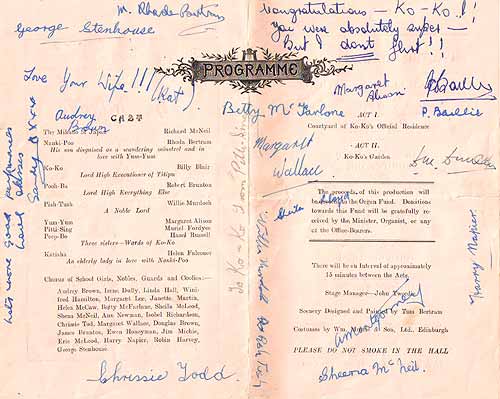 M. Rhoda Bertram
George Stenhouse
Congratulations - KO-KO..!!
You were absolutely super -
But I dont flirt!!
Love Your Wife!!! (Kat)
PROGRAMME
Audrey Brown
CAST
The Mikado Richard McNeil
Nanki-Poo Rhoda Bertram
His son disguised as a wandering minstrel and in
love with Yum-Yum
Ko-Ko Billy Blair
Lord High Executioner of Titipu
Pooh-Ba Robert Brunton
Lord High Everything Else
Pish-Tush Willie Murdoch
A Noble Lord
Yum-Yum Margaret Alison
Pitti-Sing Muriel Fordyce
Peep-Bo Hazel Russell
Three sisters—Wards of Ko-Ko
Katisha Helen Falconer
An elderly lady in love with Nanki-Poo
Chorus of School Girls, Nobles, Guards and Coolies:—
Audrey Brown, Irene Duffy, Linda Hall, Wini-
fred Hamilton, Margaret Lee, Janette Martin,
Helen McCaw, Betty McFarlone, Sheila McLeod,
Shena McNeil, Ann Newman, Isobel Richardson,
Chrissie Tod, Margaret Wallace, Douglas Brown,
James Brunton, Ewen Honeyman, Jim Michie,
Eric McLeod, Harry Napier, Robin Harvey,
George Stenhouse
Chrissie Todd.
To Ko-Ko from Pitti-Sing
Betty McFarlone
Margaret Wallace
Margaret Alison
P. Baillie
ACT I.
Courtyard of Ko-Ko's Official Residence
ACT II.
Ko-Ko's Garden
The proceeds of this production will
be the Organ Fund. Donations
towards this Fund will be gratefully
received by the Minister, Organist, or any
of the Office-Bearers.
Harry Napier.
There will be an Interval of approximately
15 minutes between the Acts.
Stage Manager—John
Scenery Designed and Painted by Tom Bertram
Costumes by Wm. & Son, Ltd., Edinburgh
PLEASE DO NOT SMOKE IN THE HALL
Sheena McNeil.